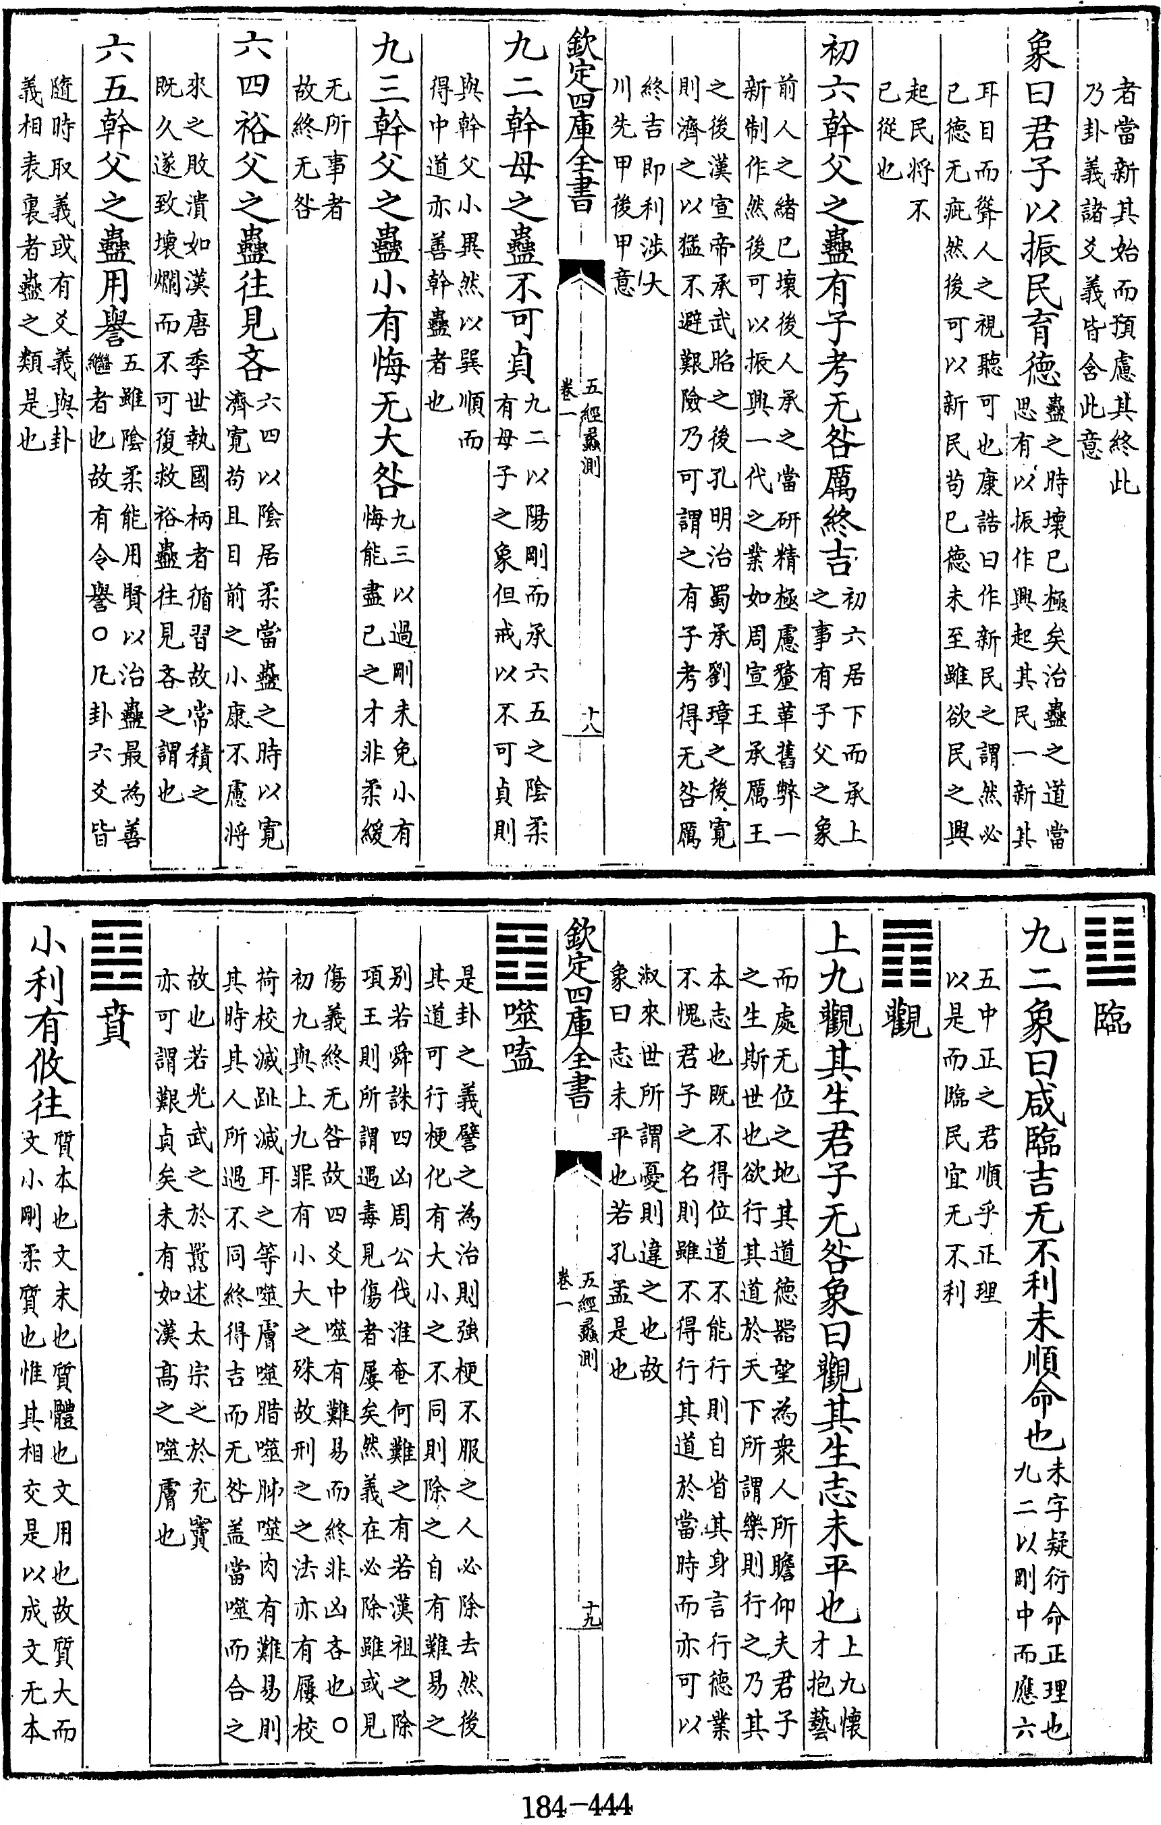 者當新其始而預慮其終此
乃卦義諸爻義皆含此意
象曰君子以振民育德蠱之時壞已極矣治蠱之道當
思有以振作興起其民一新其
耳目而聳人之視聽可也康誥曰作新民之謂然必
已德无疵然後可以新民苟已德未至雖欲民之興
起民將不
已從也
初六幹父之蠱有子考无咎厲終吉初六居下而承上
之事有子父之象
前人之緒已壞後人承之當研精極慮釐革舊弊一
新制作然後可以振興一代之業如周宣王承厲王
之後漢宣帝承武昭之後孔明治蜀承劉璋之後寬
則濟之以猛不避艱險乃可謂之有子考得无咎厲
終吉即利涉大
川先甲後甲意
欽定四庫全書
五經蠡測
卷一
十八
九二幹母之蠱不可貞九二以陽剛而承六五之陰柔
有母子之象但戒以不可貞則
與幹父小異然以巽順而
得中道亦善幹蠱者也
九三幹父之蠱小有悔无大咎九三以過剛未免小有
悔能盡已之才非柔緩
无所事者
故終无咎
六四裕父之蠱往見吝六四以陰居柔當蠱之時以寬
濟寬苟且目前之小康不慮將
來之敗潰如漢唐季世執國柄者循習故常積之
既久遂致壞爛而不可復救裕蠱往見吝之謂也
六五幹父之蠱用譽五雖陰柔能用賢以治蠱最為善
繼者也故有令譽○凡卦六爻皆
隨時取義或有爻義與卦
義相表裏者蠱之類是也
䷒臨
九二象曰咸臨吉无不利未順命也未字疑衍命正理也
九二以剛中而應六
五中正之君順乎正理
以是而臨民宜无不利
䷓觀
上九觀其生君子无咎象曰觀其生志未平也上九懷
才抱藝
而處无位之地其道德器望為衆人所瞻仰夫君子
之生斯世也欲行其道於天下所謂樂則行之乃其
本志也既不得位道不能行則自省其身言行德業
不愧君子之名則雖不得行其道於當時而亦可以
淑來世所謂憂則違之也故
象曰志未平也若孔孟是也
欽定四庫全書
五經蠡測
卷一
十九
䷔噬嗑
是卦之義譬之為治則強梗不服之人必除去然後
其道可行梗化有大小之不同則除之自有難易之
别若舜誅四凶周公伐淮奄何難之有若漢祖之除
項王則所謂遇毒見傷者屢矣然義在必除雖或見
傷義終无咎故四爻中噬有難易而終非凶吝也○
初九與上九罪有小大之殊故刑之之法亦有屨校
荷校滅趾滅耳之等噬膚噬腊噬胏噬肉有難易則
其時其人所遇不同終得吉而无咎盖當噬而合之
故也若光武之於囂述太宗之於充竇
亦可謂艱貞矣未有如漢高之噬膚也
䷕賁
小利有攸往質本也文末也質體也文用也故質大而
文小剛柔質也惟其相交是以成文无本
184-444